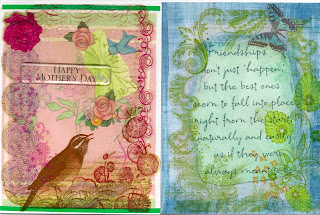 HAPPY
MOTHER'S DAY
Friendships
don't just 'happen,'
but the best ones
seem to fall into place
right from the start,
naturally and easily
as if they were
always meant